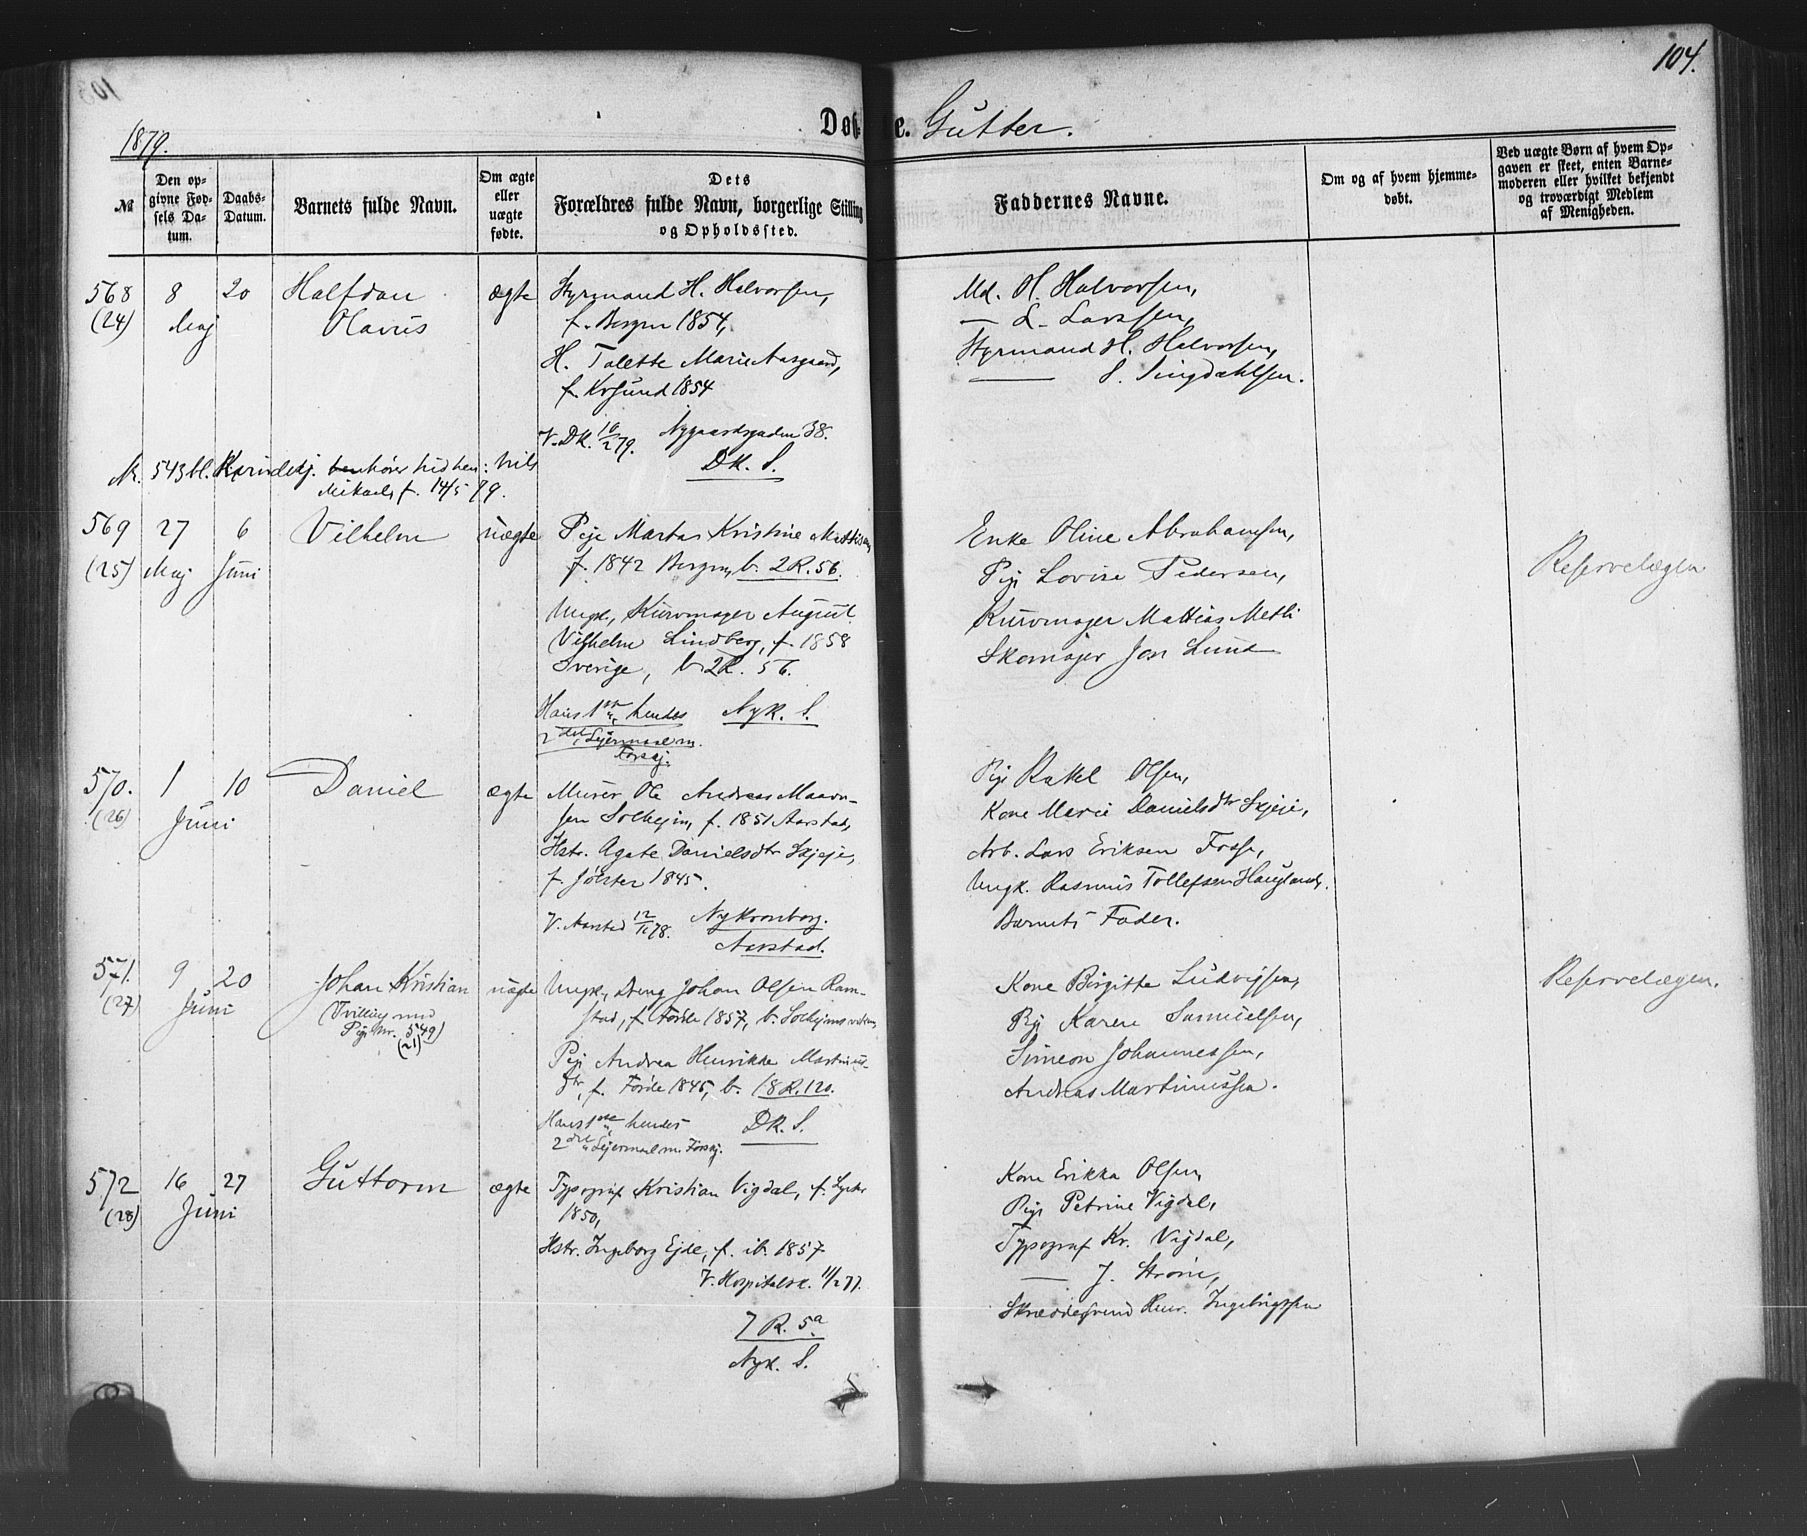 104.
1879.
Døbte. Gutter.
№
Den opgivne Fødsels Datum.
Daabs-Datum.
Barnets fulde Navn.
Om ægte eller uægte fødte.
Dets Forældres fulde Navn, borgerlige Stilling og Opholdssted.
Faddernes Navne.
Om og af hvem hjemmedøbt.
Ved uægte Børn af hvem Opgaven er skeet, enten Barnemoderen eller hvilket bekjendt og troværdigt Medlem af Menigheden.
568 8 20 Halfdan ægte Styrmand H. Halvorsen,
(24) Maj Olavus f. Bergen 1854,
H. Talette Marie Aasgaard,
f. Krsund 1854
V. DK. 16/2 79. Nygaardsgaden 38.
DK. S.
Md. H. Halvorsen,
— L. Larssen,
Styrmand H. Halvorsen,
— S. Singdahlsen.
N. 543 bl. hører hid hen: Nils
Mikael, f. 14/5 79.
569 27 6 Vilhelm uægte Pige Marta Kristine Mattisen,
(25) Maj Juni f. 1842 Bergen, b. 2 R. 56.
Ungk., Kurvmager August
Vilhelm Lindberg, f. 1858
Sverige, b. 2 R. 56.
Hans 1ste, hendes Nyk. S.
2det Lejermaal m.
Forskj.
Enke Oline Abrahamsen,
Pige Lovise Pedersen,
Kurvmager Mattias Metli
Skomager Jon Lund
Reservelægen
570. 1 10 Daniel ægte Murer Ole Andreas Maavn-
(26) Juni sen Solhejm, f. 1851 Aarstad,
Hstr. Agate Danielsdtr Skjeje,
f. Jølster 1845.
V. Aarstad 12/ 78. Nykronborg.
Aarstad.
Pige Rakel Olsen,
Kone Marie Danielsdtr Skjeje,
Arb. Lars Eriksen Fosse,
Ungk. Rasmus Tollefsen Haugland,
Barnets Fader.
571. 9 20 Johan Kristian uægte Ungk., Dreng Johan Olsen Ram-
(27) Juni (Tvilling med stad, f. Førde 1857, b. Solhejmsviken,
Pige nr. 549)
(21)
Pige Andrea Henrikke Martinus-
dtr, f. Førde 1845, b. 18 R. 120.
Hans 1ste, hendes DK. S.
2det Lejermaal m. Forskj.
Kone Birgitte Ludvigsen,
Pige Karen Samuelsen,
Simeon Johannessen,
Andreas Martinussen.
Reservelægen.
572 16 27 Guttorm ægte Typograf Kristian Vigdal, f. Lyster
(28) Juni 1850,
Hstr. Ingeborg Ejde, f. ib. 1857
V. Hospitalsk. 11/2 77.
7 R. 5a
Nyk. S.
Kone Erikka Olsen,
Pige Petrine Vigdal,
Typograf Kr. Vigdal,
— J. Strøm,
Skræddersvend Henr. Ingebrigtsen